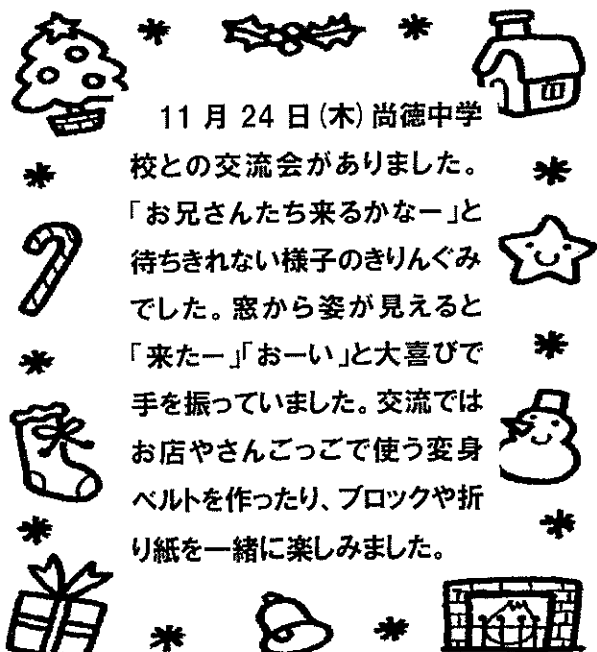 11 月 24 日 (木) 尚徳中学
校との交流会がありました。
「お兄さんたち来るかなー」と
待ちきれない様子のきりんぐみ
でした。窓から姿が見えると
「来たー」「おーい」と大喜びで
手を振っていました。交流では
お店やさんごっごで使う変身
ベルトを作ったり、ブロックや折
り紙を一緒に楽しみました。